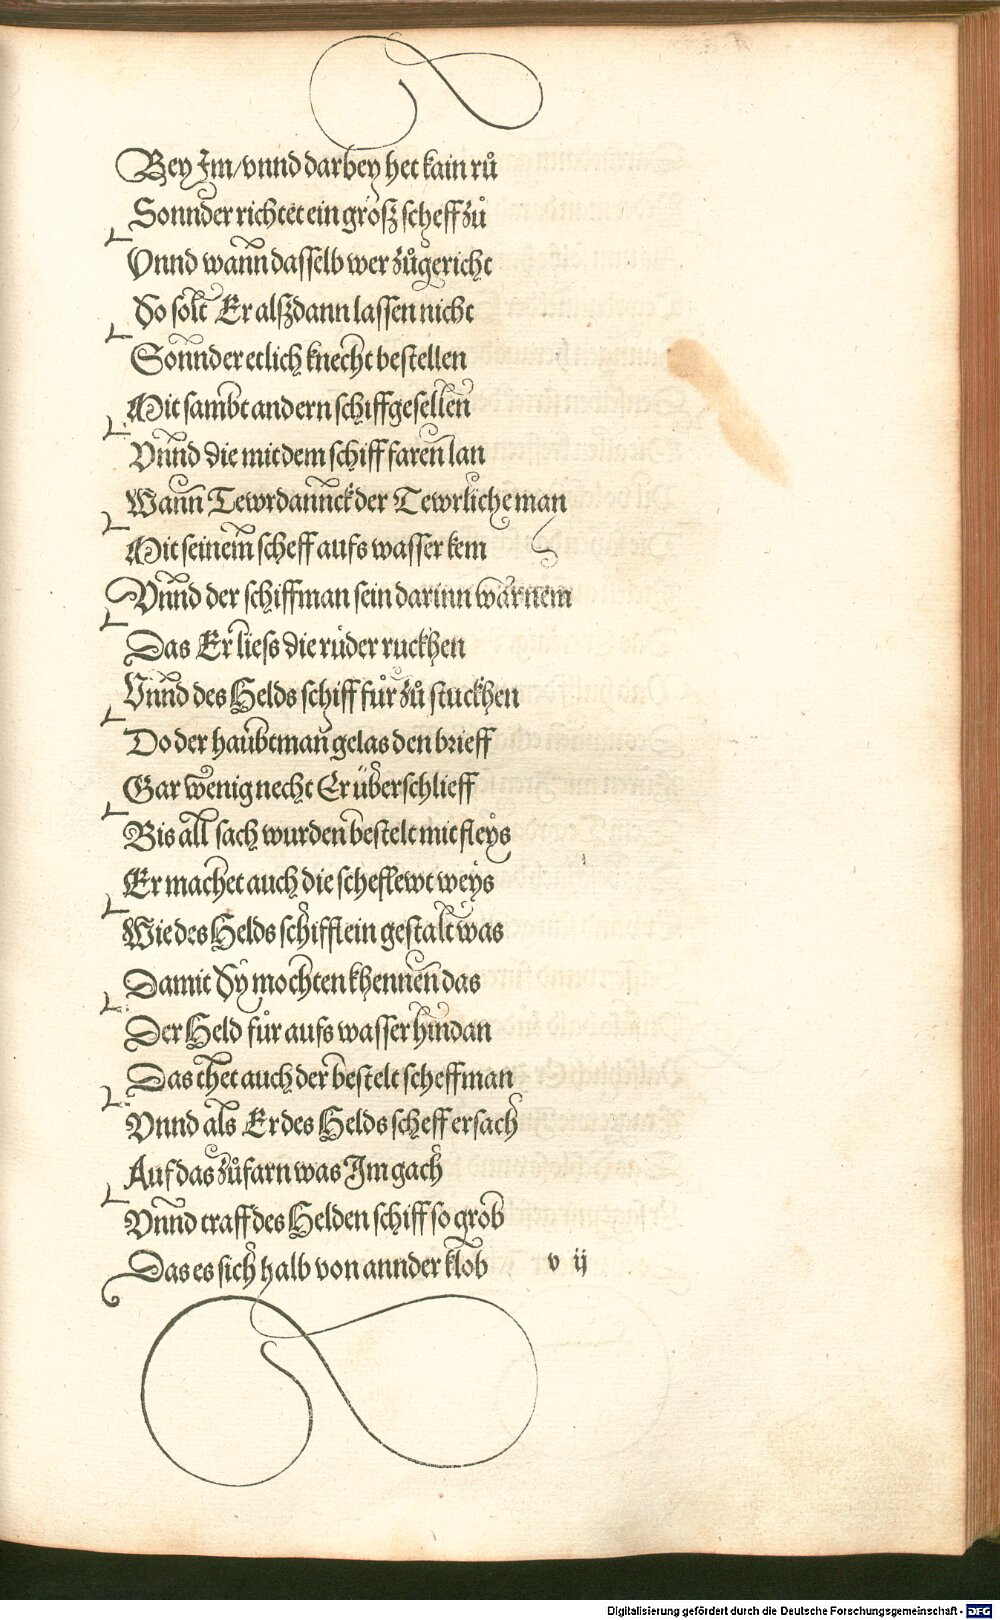 Bey Im/vnnd darbey het kain rů
Sonnder richtet ein groſz ſcheff zů
Vnnd wann daſſelb wer zůgericht
So ſolt Er alſzdann laſſen nicht
Sonnder etlich knecht beſtellen
Mit ſambt andern ſchiffgeſellen
Vnnd die mit dem ſchiff faren lan
Wann Tewrdannck der Tewrliche man
Mit ſeinem ſcheff aufs waſſer kem
Vnnd der ſchiffman ſein darinn warnem
Das Er lieſs die růder ruckhen
Vnnd des Helds ſchiff fůr zů ſtuckhen
Do der haubtman gelas den brieff
Gar wenig necht Er überſchlieff
Bis all ſach wurden beſtelt mit fleys
Er machet auch die ſcheflewt weys
Wie des Helds ſchifflein geſtalt was
Damit Sy mochten khennen das
Der Held fůr aufs waſſer hindan
Das thet auch der beſtelt ſcheffman
Vnnd als Er des Helds ſcheff erſach
Auf das zůfarn was Im gach
Vnnd traff des Helden ſchiff ſo grob
Das es ſich halb von annder klob v ij
Digitalisierung gefördert durch die Deutsche Forschungsgemeinschaft - DFG